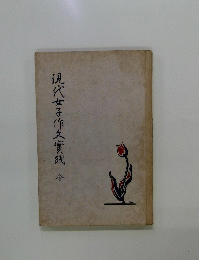 現代女子作文實践 全